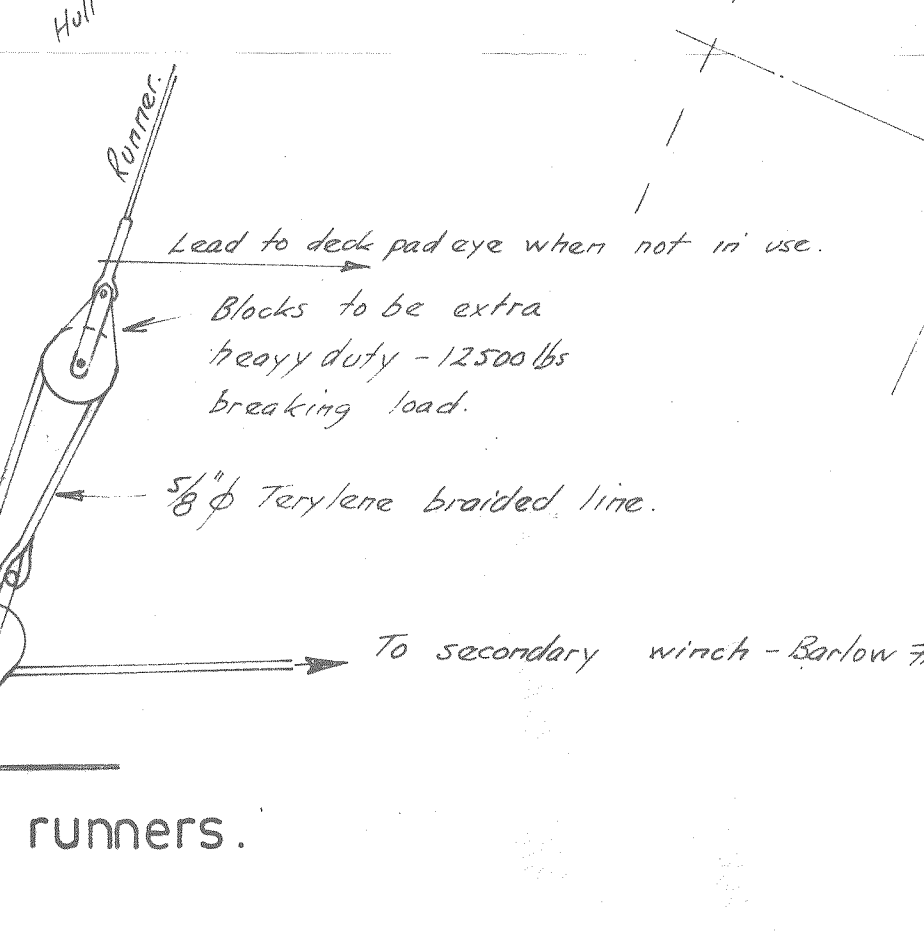 Hull
Runner.
Lead to deck pad eye when not in use.
Blocks to be extra
heavy duty - 12500 lbs
breaking load.
5/8"ϕ Terylene braided line.
To secondary winch - Barlow
runners.